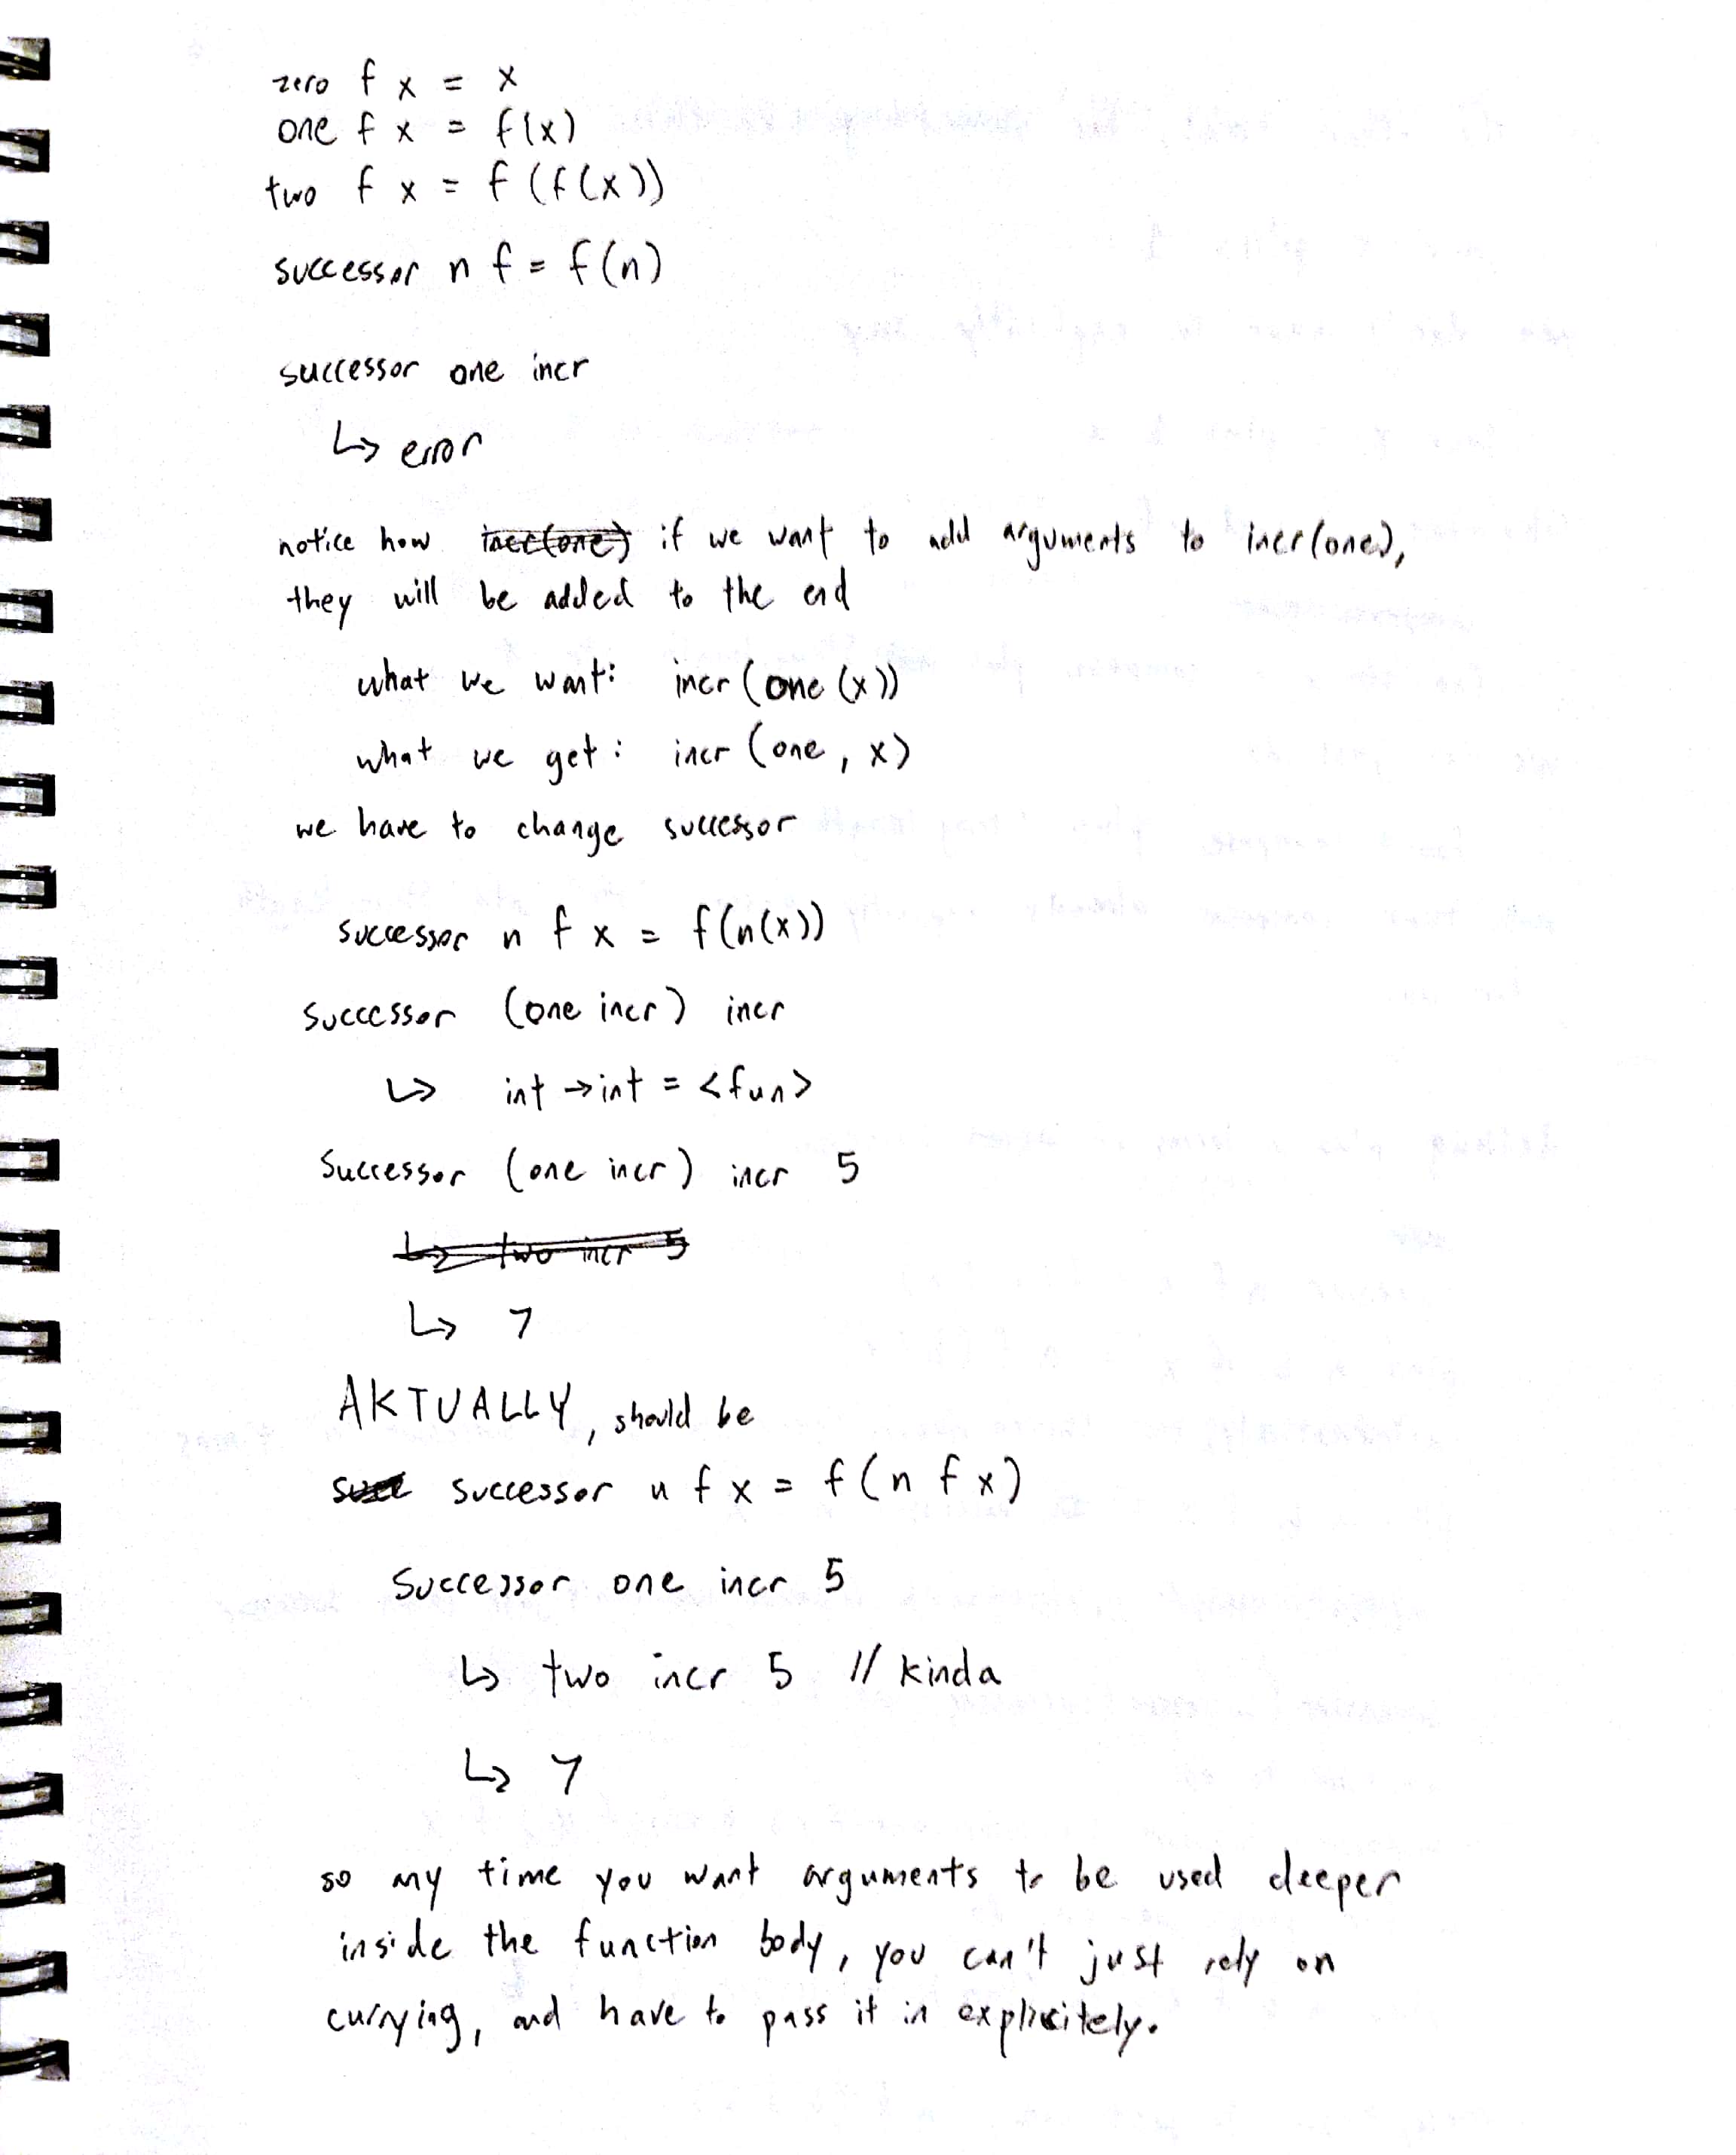 zero f x = x
one f x = f(x)
two f x = f(f(x))
successor n f = f(n)
successor one incr
↳ error
notice how incr(one) if we want to add arguments to incr(one),
they will be added to the end
what we want: incr(one(x))
what we get: incr(one, x)
we have to change successor
successor n f x = f(n(x))
successor (one incr) incr
↳ int → int = <fun>
successor (one incr) incr 5
↳ two incr 5
↳ 7
AKTUALLY, should be
succ successor n f x = f(n f x)
successor one incr 5
↳ two incr 5 // kinda
↳ 7
so any time you want arguments to be used deeper
inside the function body, you can't just rely on
currying, and have to pass it in explicitely.